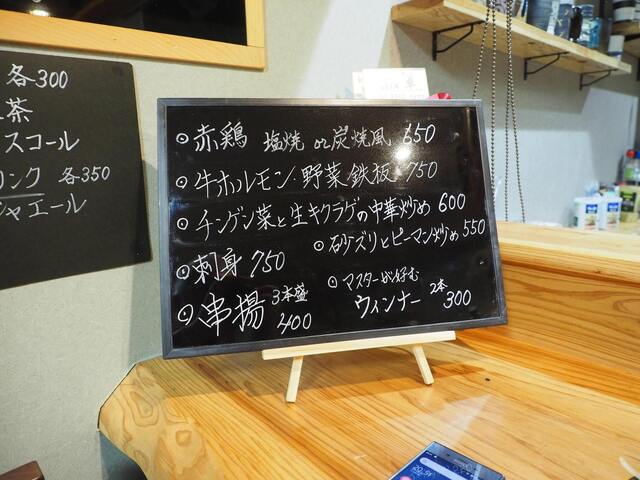 各300
茶
スコール
リンク 各350
ジャエール
赤鶏 塩焼 or 炭焼風 650
牛ホルモン野菜鉄板 750
チンゲン菜と生キクラゲの中華炒め 600
砂ズリとピーマン炒め 550
刺身 750
マスターが好む
ウィンナー 2本 300
串揚 3本盛 400